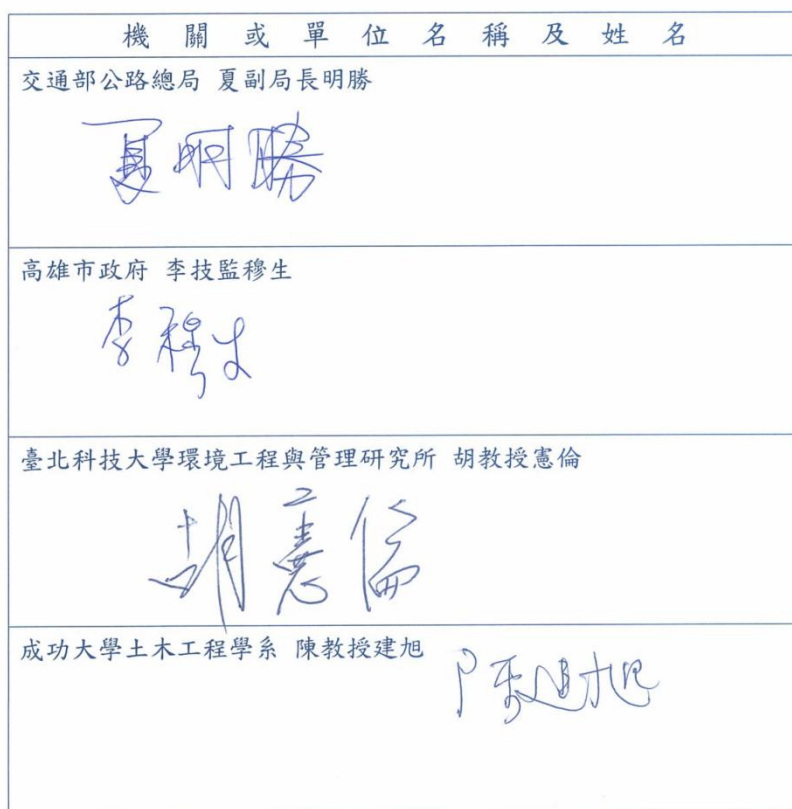 機關或單位名稱及姓名
交通部公路總局 夏副局長明勝
夏明勝
高雄市政府 李技監穆生
李穆生
臺北科技大學環境工程與管理研究所 胡教授憲倫
胡憲倫
成功大學土木工程學系 陳教授建旭
陳建旭